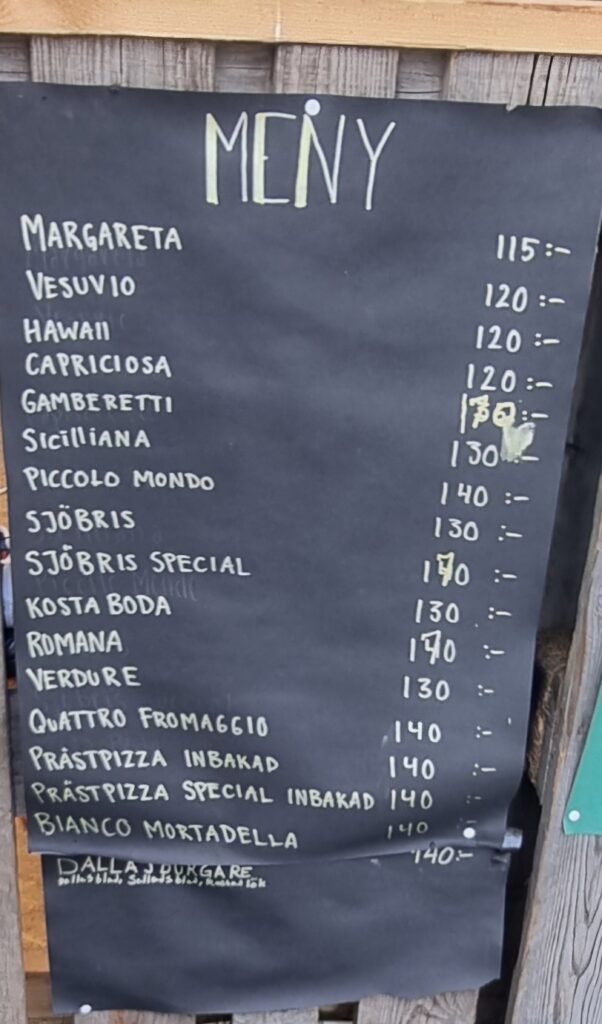 MENY
MARGARETA 115:-
VESUVIO 120:-
HAWAII 120:-
CAPRICIOSA 120:-
GAMBERETTI
SICILLIANA 130:-
PICCOLO MONDO 140:-
SJÖBRIS 130:-
SJÖBRIS SPECIAL :-
KOSTA BODA 130:-
ROMANA :-
VERDURE 130:-
QUATTRO FROMAGGIO 140:-
PRÄSTPIZZA INBAKAD 140:-
PRÄSTPIZZA SPECIAL INBAKAD 140:-
BIANCO MORTADELLA 140
140:-